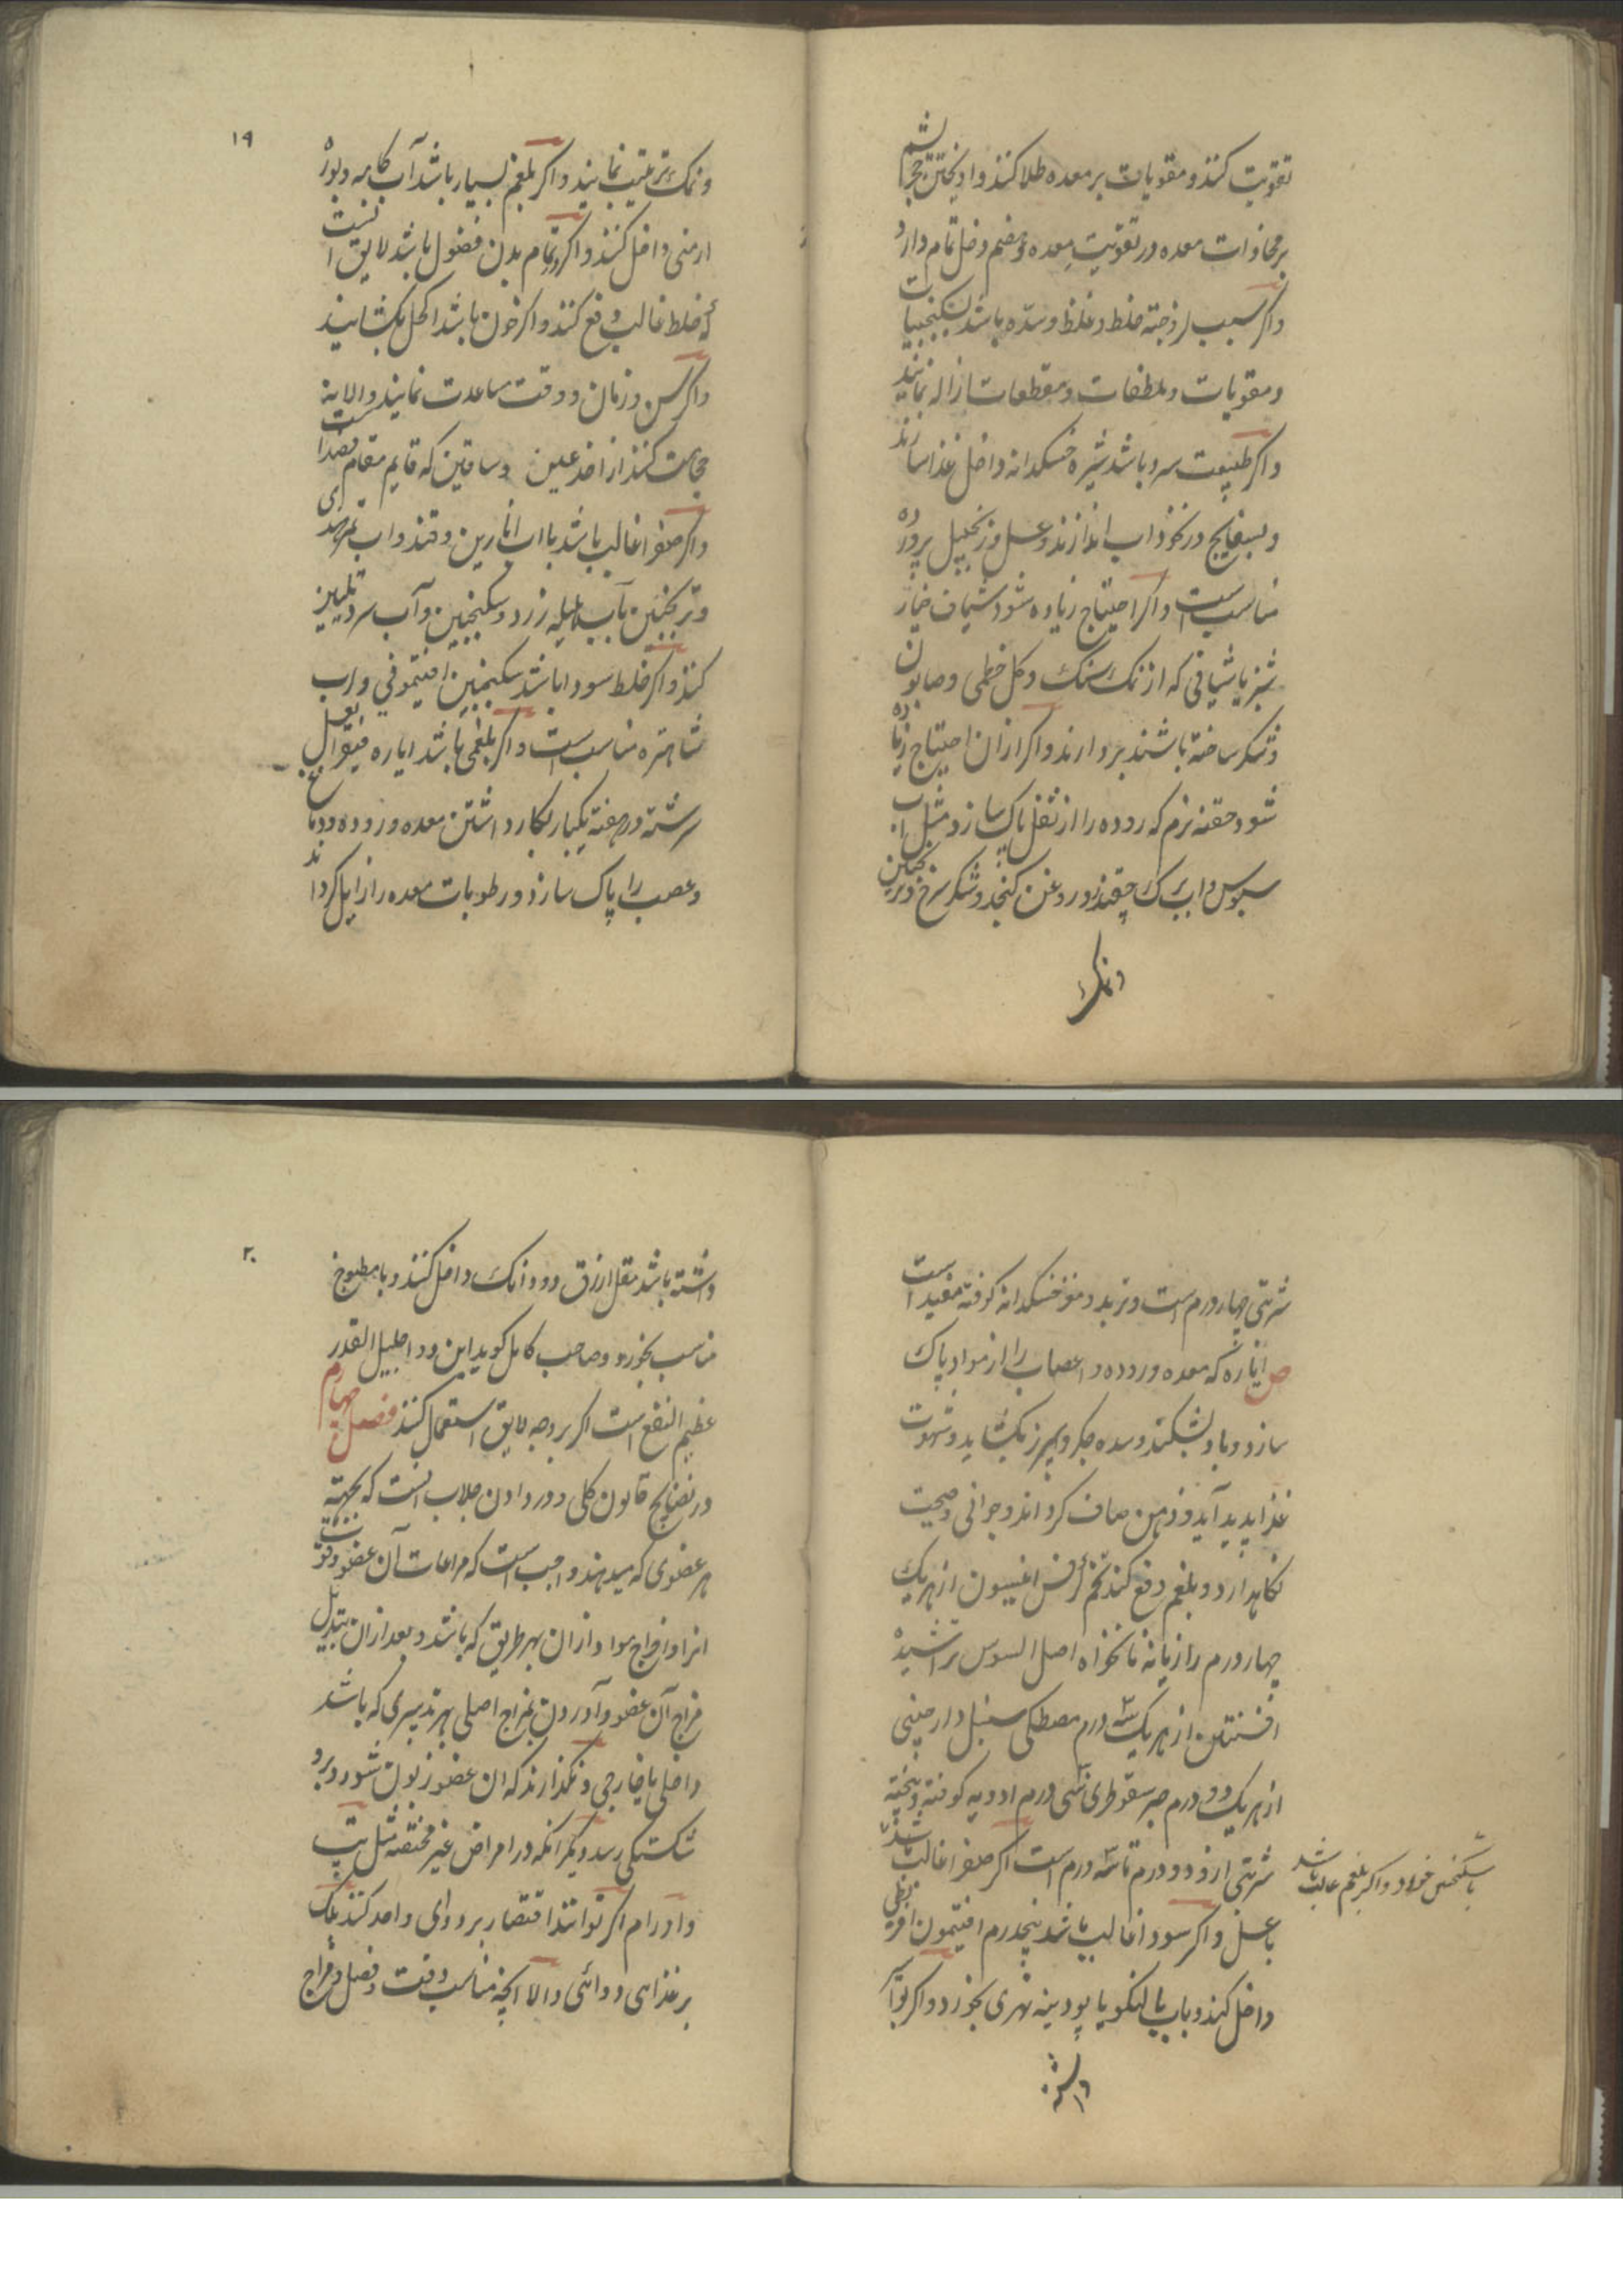 تقویت کنند و مقویات بر معده طلا کنند و اویختن حجر یشم
بر محاذات معده در تقویت معده و هضم دخل تمام دارد
و اکر سبب لزوجة خلط و غلظ و سدّه باشد بسکنجبینات
و مقویات و ملطفات و مقطعات ازاله نمایند
و اکر طبیعت سرد باشد شیره خسکدانه داخل غذا سازند
و بسفایج در نخوداب اندازند و عسل و زنجبیل پرورده
مناسب است و اکر احتیاج زیاده شود شیاف خیار
شنبر یا شیافی که از نمک سنک و کل خطمی و صابون
و شکر ساخته باشند بردارند و اکر ازان احتیاج زیاده
شود حقنه نرم که روده را از ثفل پاک سازد مثل آب
سبوس و اب برک چقندر و روغن کنجد و شکر سرخ و ترنجبین
و نمک
۱۹
و نمک ترتیب نمایند و اکر بلغم بسیار باشد آب کامه و بوره
ارمنی داخل کنند و اکر در تمام بدن فضول باشد لایق انست
که خلط غالب دفع کنند و اکر خون باشد اکحل بکشایند
و اکر سن و زمان و وقت مساعدت نمایند و الا به
حجامت کنند از اخدعین و ساقین که قایم مقام فصد است
و اکر صفرا غالب باشد با اب انارین و قند و اب تمر هندی
و ترنجبین بآب هلیله زرد و سکنجبین و آب سرد تلیین
کنند و اکر خلط سودا باشد سکنجبین افتیمونی و اب
شاهتره مناسب است و اکر بلغمی باشد ایاره فیقرا بعسل
سرشته در هفته یکبار بکار داشتن معده و روده و دماغ
و عصب را پاک سازد و رطوبات معده را زایل کرداند
شربتی چهار درم است و تربد و مغز خسکدانه کوفته مفید است
ص ایاره که معده و روده و اعصاب را از مواد پاک
سازد و باد بشکند و سده جکر و سپرز بکشاید و شهوت
غذا پدید آید و ذهن صاف کرداند و جوانی و صحت
نکاهدارد و بلغم دفع کند تخم کرفس انیسون از هریک
چهار درم رازیانه نانخواه اصل السوس تراشیده
افسنتین از هریک سه درم مصطکی سنبل دارچینی
از هریک دو درم صبر سقوطری سی درم ادویه کوفته و بیخته
شربتی از دو درم تا سه درم است اکر صفرا غالب باشد
با سکنجبین خورد و اکر بلغم غالب باشد
با عسل و اکر سودا غالب باشد پنجدرم افتیمون
داخل کنند و باب بالنکو یا پودینه نهری بخورد و اکر بواسیر
داشته
۲۰
داشته باشد مقل ازرق دو دانک داخل کنند و با مطبوخ
مناسب بخورد و صاحب کامل کوید این دوا جلیل القدر
عظیم النفع است اکر بر وجه لایق استعمال کنند فصل چهارم
در نضایج قانون کلی در دادن جلاب انست که بجهة
هر عضوی که میدهند واجب است که مراعات آن عضو و قوت
انرا و اخراج مواد ازان بهر طریق که باشد و بعد ازان تبدیل
مزاج آن عضو و آوردن بمزاج اصلی بهر تدبیری که باشد
داخلی یا خارجی و نکذارند که ان عضو زبون شود و برو
شکستکی رسد و دیکر انکه در امراض غیر مختصه مثل تپ
و اورام اکر توانند اقتصار بر دوائی واحد کنند بلک
بر غذای دوائی و الا انچه مناسب وقت و فصل و مزاج